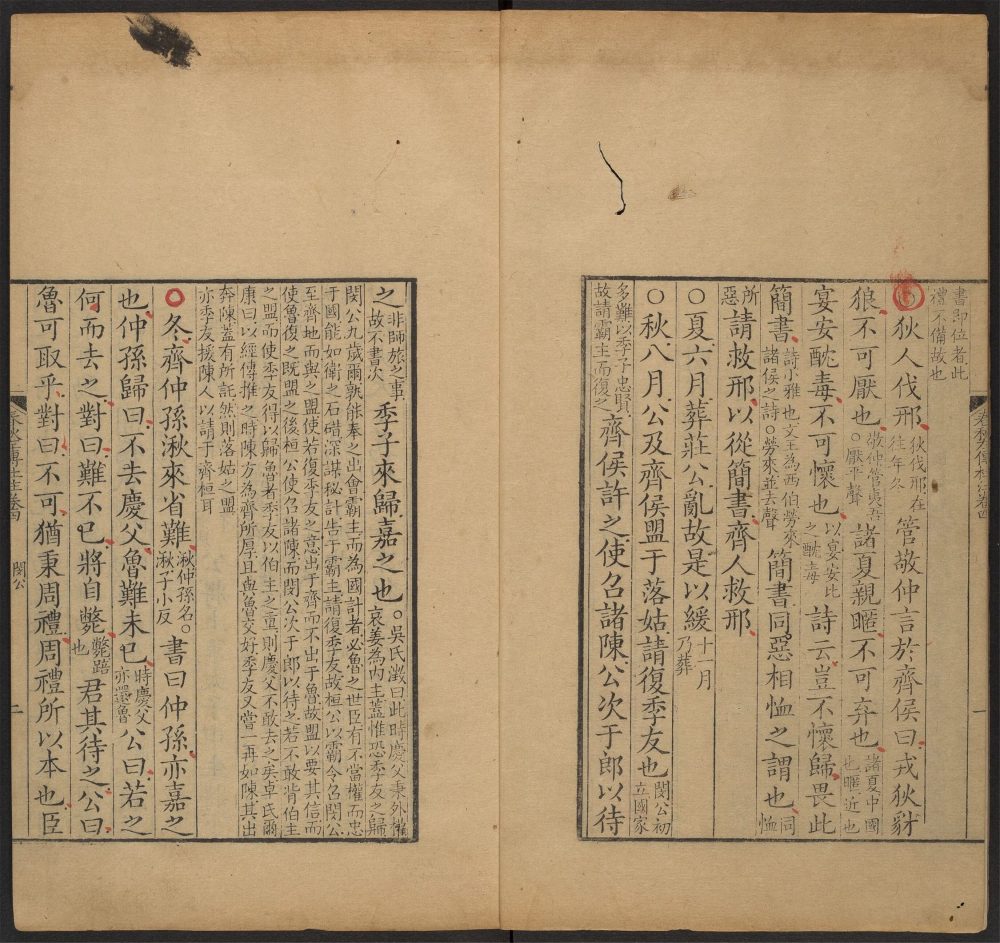 書即位者此
禮不備故也
〇狄人伐邢狄伐邢在往年冬管敬仲言於齊侯曰戎狄豺
狼不可厭也敬仲管夷吾〇厭平聲諸夏親暱不可弃也諸夏中國也暱近也
宴安酖毒不可懷也以宴安比之酖毒詩云豈不懷歸畏此
簡書詩小雅也文王為西伯勞來諸侯之詩〇勞來並去聲簡書同惡相恤之謂也同恤
所惡請救邢以從簡書齊人救邢
〇夏六月葬莊公亂故是以緩十一月乃葬
〇秋八月公及齊侯盟于落姑請復季友也閔公初立國家
多難以季子忠賢故請霸主而復之齊侯許之使召諸陳公次于郎以待
之非師旅之事故不書次季子來歸嘉之也〇吳氏澂曰此時慶父秉外權哀姜為內主蓋惟恐季友之歸
閔公九歲爾孰能奉之出會霸主而為國計者必魯之世臣有不當權而忠
于國能如衛之石碏深謀秘計告于霸主請復季友故桓公以霸令召閔公
至齊地而與之盟使若復季友之意出于齊而不出于魯故盟以要其信而
使魯復之既盟之後桓公使召諸陳而閔公次于郎以待之若不敢背伯主
之盟而使季友得以歸魯者季友以伯主之重則慶父不敢去之矣卓氏爾
康曰以經傳推之時陳方為齊所厚且與魯交好季友又嘗一再如陳其出
奔陳蓋有所託然則落姑之盟
亦季友援陳人以請于齊桓耳
〇冬齊仲孫湫來省難湫仲孫名〇湫子小反書曰仲孫亦嘉之
也仲孫歸曰不去慶父魯難未已時慶父亦還魯公曰若之
何而去之對曰難不已將自斃斃踣也君其待之公曰
魯可取乎對曰不可猶秉周禮周禮所以本也臣
閔公
一
二